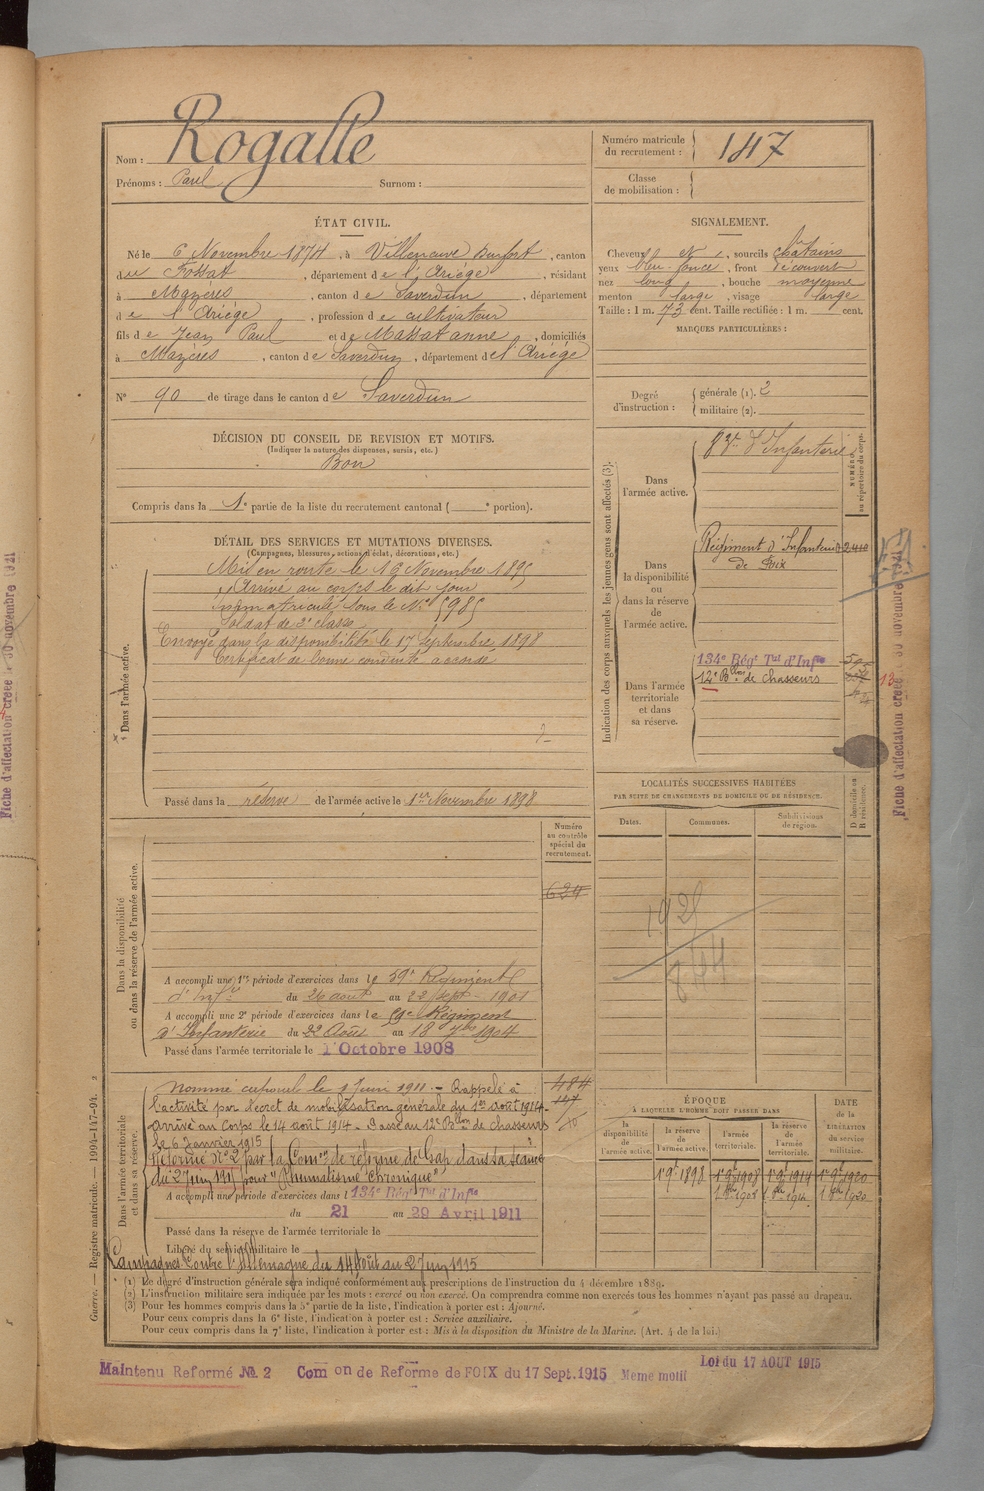 Nom : Rogalle
Prénoms : Paul Surnom :
Numéro matricule du recrutement : 147
Classe de mobilisation :
ÉTAT CIVIL.
Né le 6 Novembre 1874, à Villeneuve Durfort, canton
du Fossat, département de l'Ariège, résidant
à Mazères, canton de Saverdun, département
de l'Ariège, profession de cultivateur
fils de Jean Paul et de Massat anne, domiciliés
à Mazères, canton de Saverdun, département de l'Ariège
N° 90 de tirage dans le canton de Saverdun
SIGNALEMENT.
Cheveux et, sourcils châtains
yeux bleu foncé, front découvert
nez long, bouche moyenne
menton large, visage large
Taille : 1 m. 73 cent. Taille rectifiée : 1 m. cent.
MARQUES PARTICULIÈRES :
Degré d'instruction : générale (1). 2
militaire (2).
DÉCISION DU CONSEIL DE REVISION ET MOTIFS.
(Indiquer la nature des dispenses, sursis, etc.)
Bon
Compris dans la 1e partie de la liste du recrutement cantonal ( e portion).
DÉTAIL DES SERVICES ET MUTATIONS DIVERSES.
(Campagnes, blessures, actions d'éclat, décorations, etc.)
Dans l'armée active.
Mis en route le 16 Novembre 1895
Arrivé au corps le dit jour
Immatriculé sous le N° 5985
Soldat de 2e classe
Envoyé dans la disponibilité le 17 Septembre 1898
Certificat de bonne conduite accordé
Passé dans la réserve de l'armée active le 1er Novembre 1898
Indication des corps auxquels les jeunes gens sont affectés (3).
NUMÉRO au répertoire du corps.
Dans l'armée active.
d'Infanterie
Dans la disponibilité ou dans la réserve de l'armée active.
Régiment d'Infanterie 2410
de Foix
Dans l'armée territoriale et dans sa réserve.
134e Régt Tal d'Infie
12e Bllon de Chasseurs
LOCALITÉS SUCCESSIVES HABITÉES
PAR SUITE DE CHANGEMENTS DE DOMICILE OU DE RÉSIDENCE.
Dates. Communes. Subdivisions de région. D domicile ou R résidence.
Dans la disponibilité ou dans la réserve de l'armée active.
Numéro au contrôle spécial du recrutement.
624
A accompli une 1re période d'exercices dans le 59e Régiment
d'Infie du 26 août au 22 Sept 1901
A accompli une 2e période d'exercices dans le 59e Régiment
d'Infanterie du 22 Août au 18 7bre 1904
Passé dans l'armée territoriale le 1 Octobre 1908
Dans l'armée territoriale et dans sa réserve.
Nommé caporal le 1 Juin 1911. - Rappelé à
l'activité par décret de mobilisation générale du 1er Août 1914 -
arrivé au Corps le 14 août 1914 - Passé au 12e Bllon de chasseurs
le 6 Janvier 1915
Réformé N° 2 par la Comon de réforme de Gap dans sa séance
du 2 Juin 1915 pour "Rhumatisme chronique"
484
A accompli une période d'exercices dans l 134e Régt Tal d'Infie
du 21 au 29 Avril 1911
Passé dans la réserve de l'armée territoriale le
Libéré du service militaire le
Campagnes Contre l'Allemagne du 14 Août au 2 Juin 1915
ÉPOQUE
À LAQUELLE L'HOMME DOIT PASSER DANS
la disponibilité de l'armée active. la réserve de l'armée active. l'armée territoriale. la réserve de l'armée territoriale.
DATE de la LIBÉRATION du service militaire.
1 9bre 1898 1 9bre 1908 1 9bre 1914 1 9bre 1920
1 8bre 1908 1 8bre 1914 1 8bre 1920
(1) Le degré d'instruction générale sera indiqué conformément aux prescriptions de l'instruction du 4 décembre 1889.
(2) L'instruction militaire sera indiquée par les mots : exercé ou non exercé. On comprendra comme non exercés tous les hommes n'ayant pas passé au drapeau.
(3) Pour les hommes compris dans la 5e partie de la liste, l'indication à porter est : Ajourné.
Pour ceux compris dans la 6e liste, l'indication à porter est : Service auxiliaire.
Pour ceux compris dans la 7e liste, l'indication à porter est : Mis à la disposition du Ministre de la Marine. (Art. 4 de la loi.)
Guerre. — Registre matricule. — 1994-147-94. 2
Maintenu Reformé No. 2 Com on de Reforme de FOIX du 17 Sept. 1915 Meme motif
Loi du 17 AOUT 1915
Fiche d'affectation créée le 30 novembre 1921
Fiche d'affectation créée le 30 novembre 1921